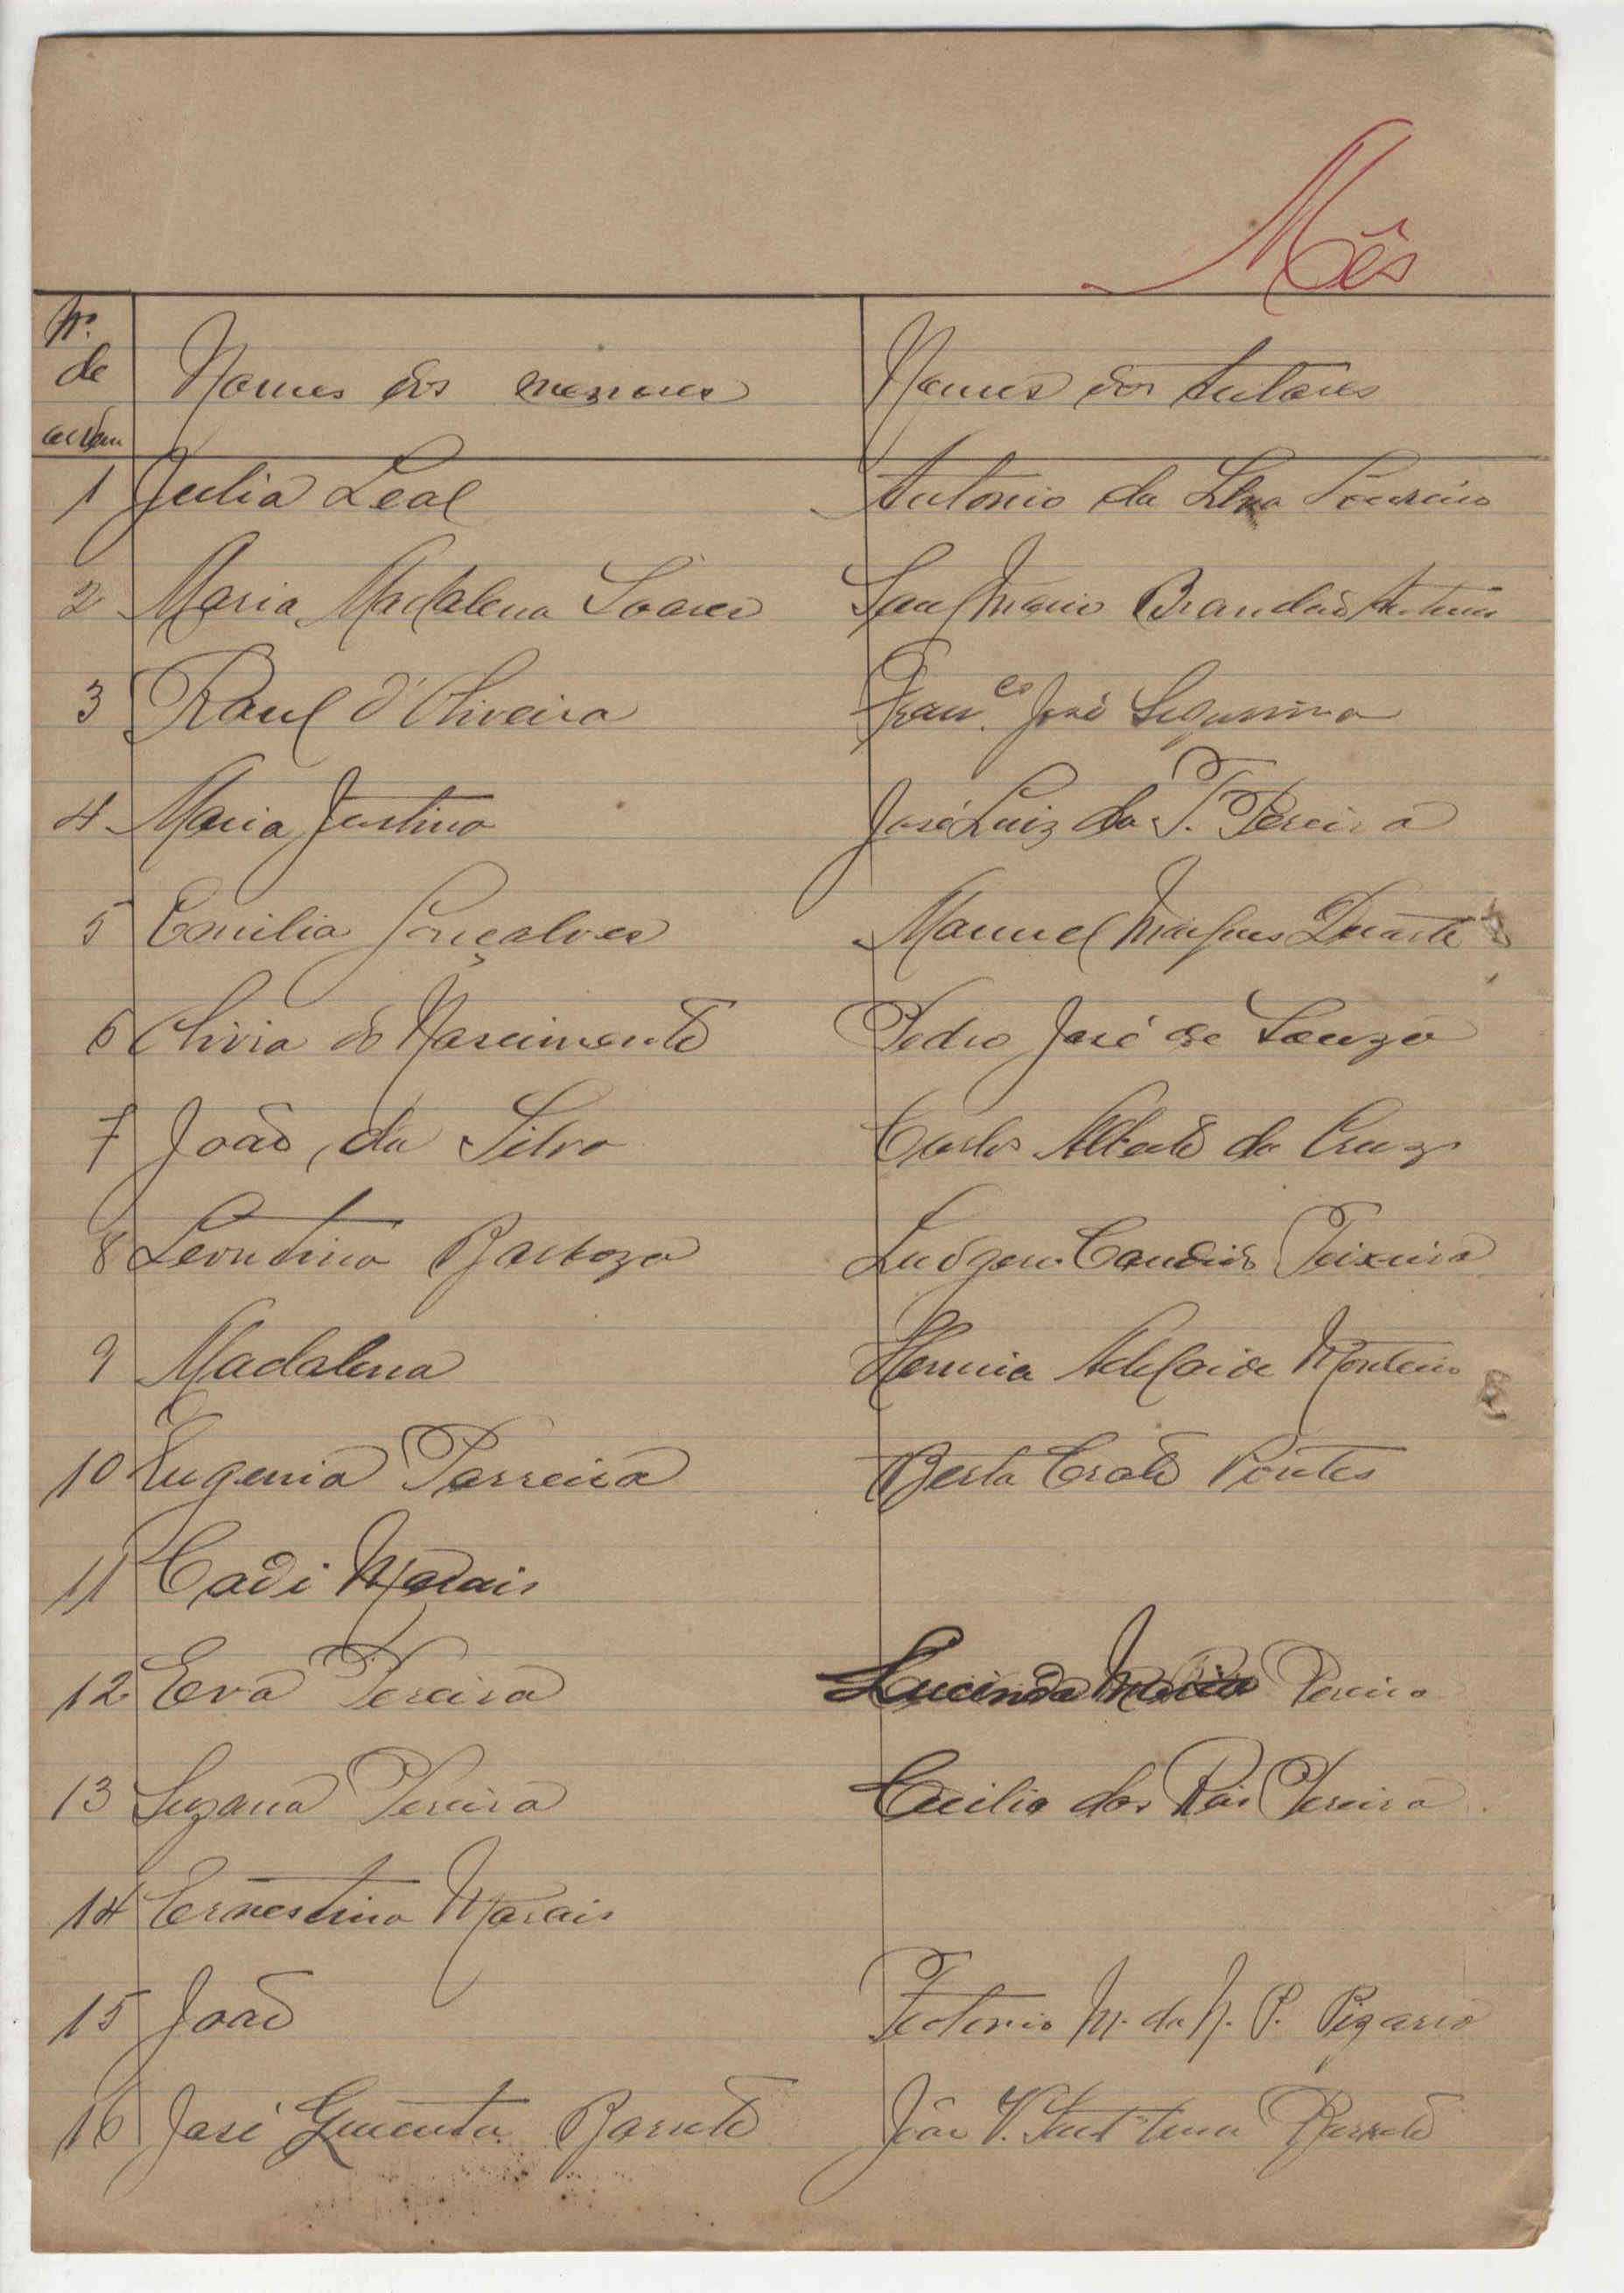 Mês
Nº de ordem Nomes dos menores Nomes dos tutores
1 Julia Leal Antonio da Silva Loureiro
2 Maria Madalena Soares Brandão
3 Raul d'Oliveira Fran.co José
4 Maria Justina José Luiz da T. Pereira
5 Emilia Gonçalves Manuel Marques Duarte
6 Olivia do Nascimento Pedro José de Souza
7 João da Silva Carlos Alberto da Cruz
8 Leontina Barboza Ludgero Candido Teixeira
9 Madalena Herminia Adelaide Monteiro
10 Eugenia Parreira Berta Crato Pontes
11 Cadi Morais
12 Eva Pereira Lucinda Maria Pereira
13 Suzana Pereira Cecilia dos Reis Pereira
14 Ernestina Morais
15 João M. da N. P. Pizarro
16 José Barreto João V. Sant'Anna Barreto